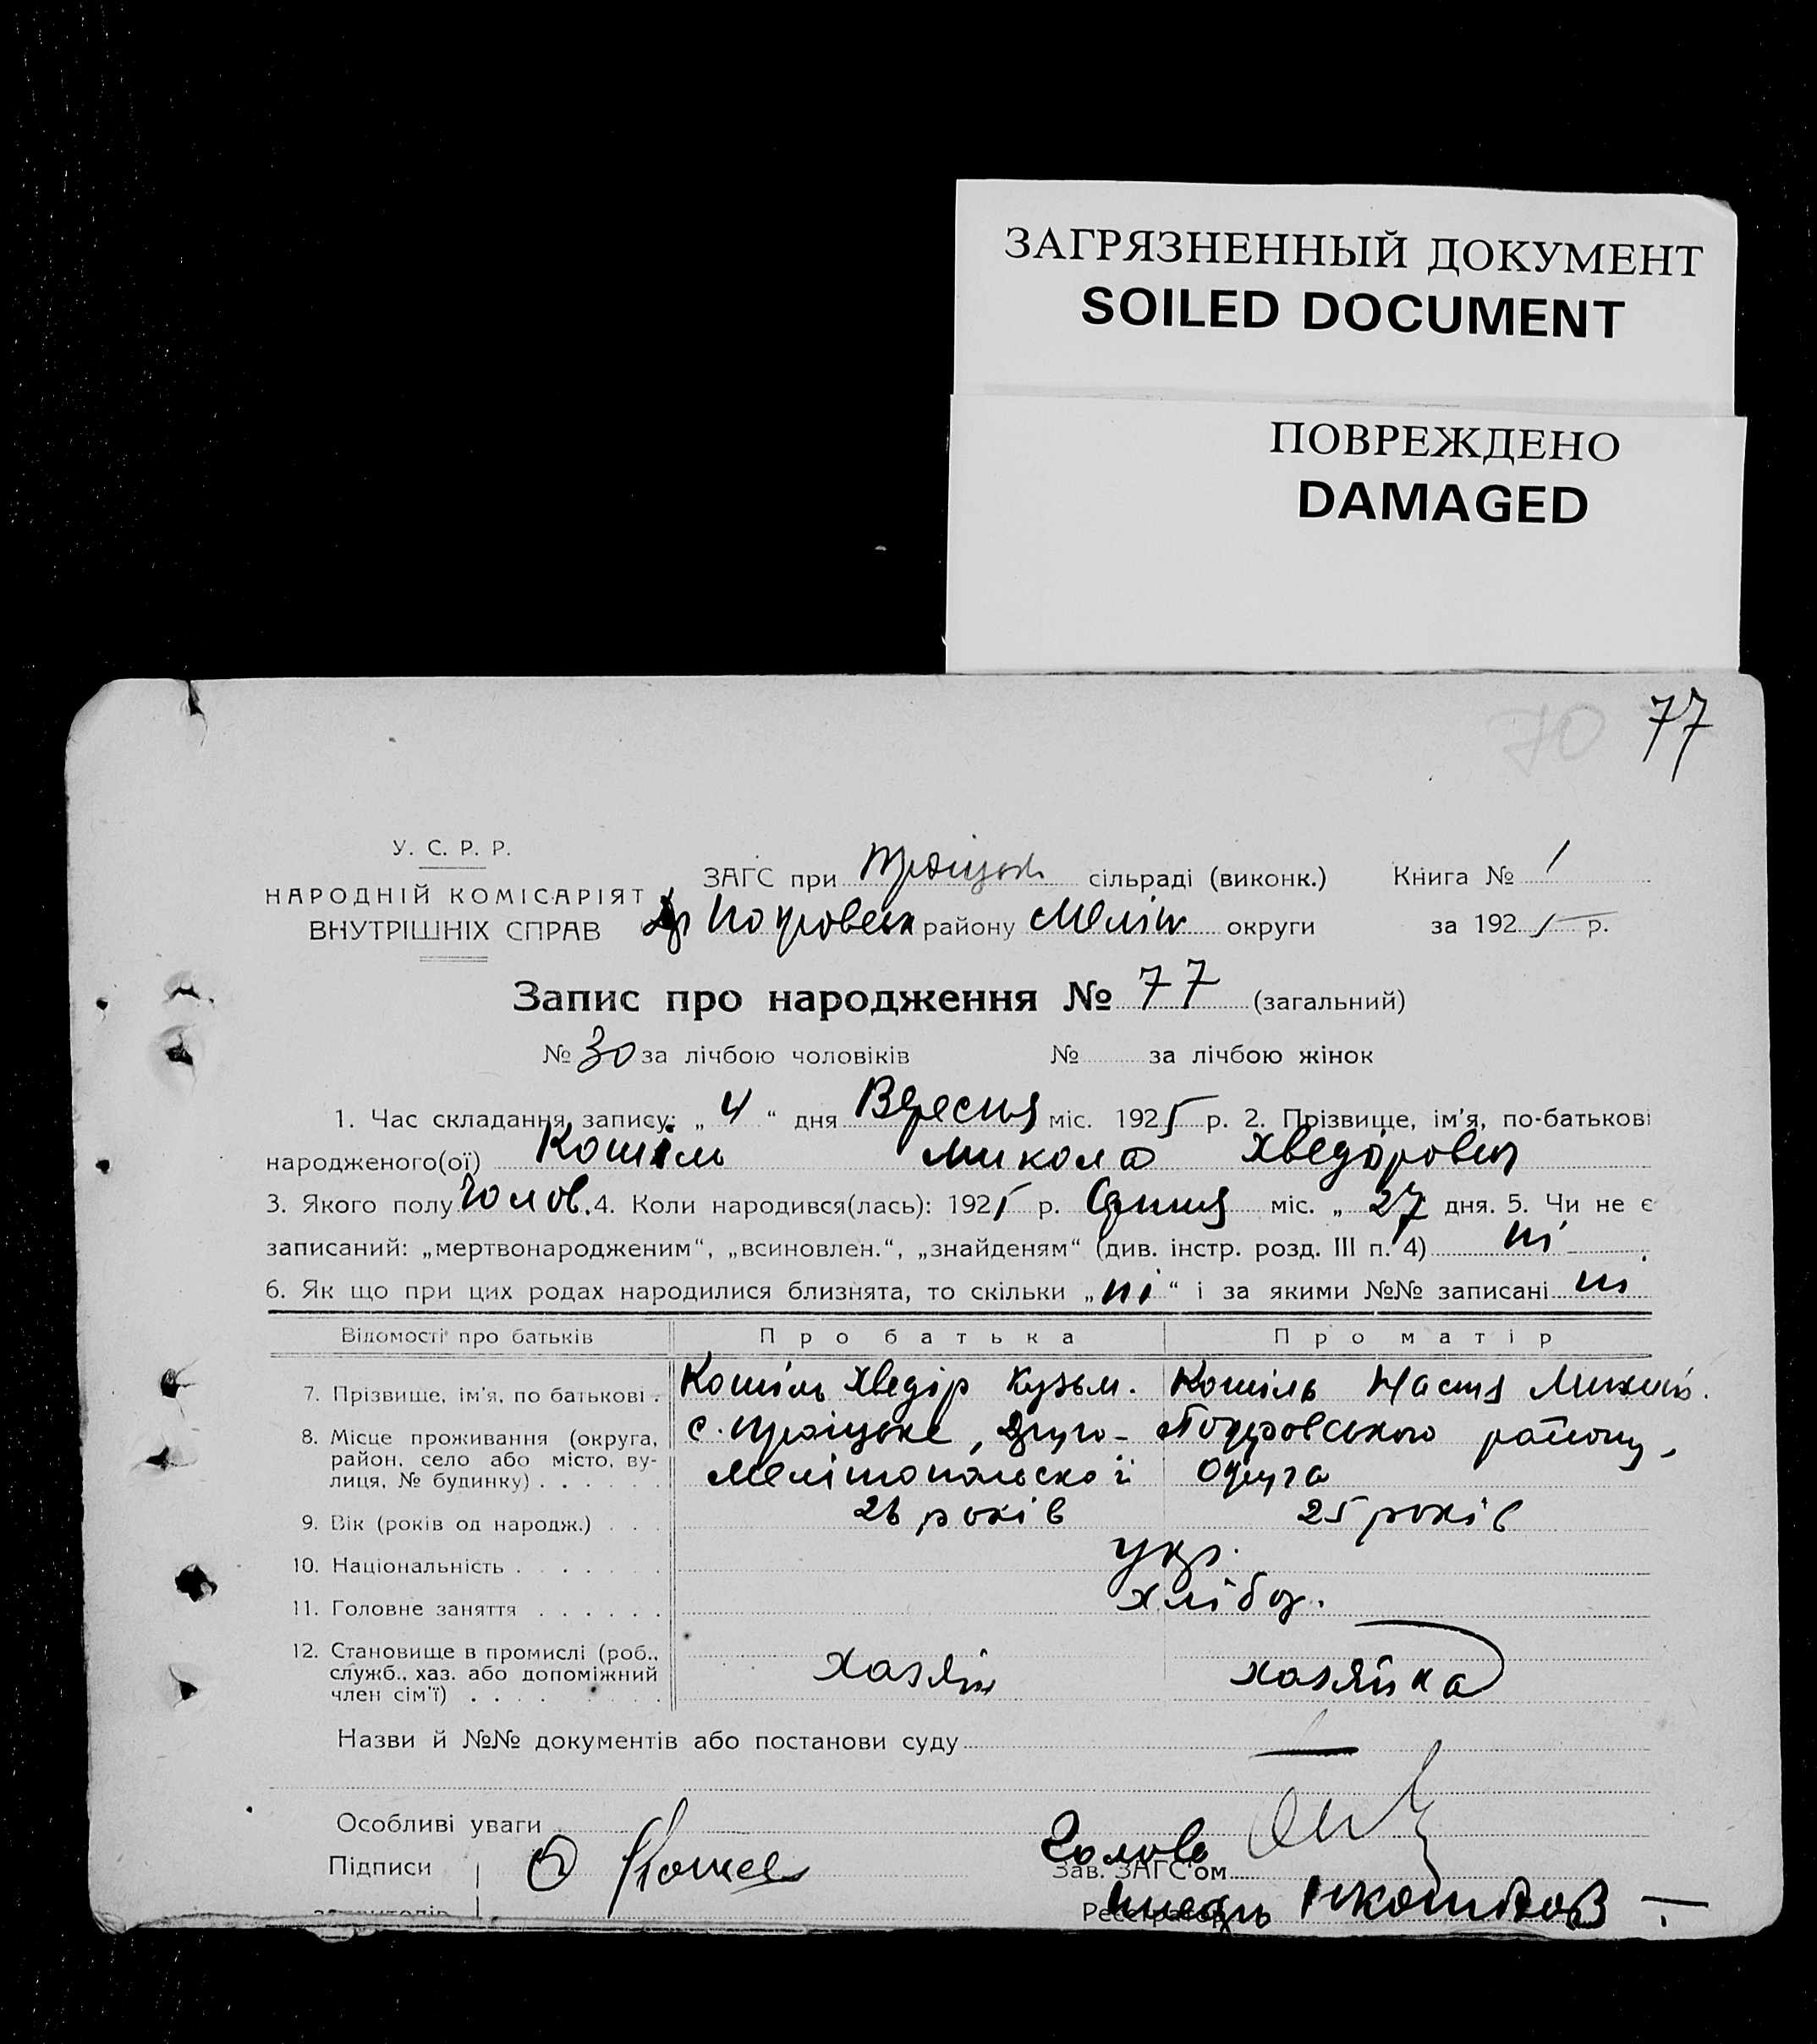 ЗАГРЯЗНЕННЫЙ ДОКУМЕНТ
SOILED DOCUMENT
ПОВРЕЖДЕНО
DAMAGED
70 77
У. С. Р. Р.
НАРОДНІЙ КОМІСАРІЯТ
ВНУТРІШНІХ СПРАВ
ЗАГС при Троіцьк сільраді (виконк.) Книга № 1
Др Покровськ району Меліт округи за 1925 р.
Запис про народження № 77 (загальний)
№ 30 за лічбою чоловіків № за лічбою жінок
1. Час складання запису: „ 4 “ дня Вересня міс. 1925 р. 2. Прізвище, ім’я, по-батькові
народженого(ої) Кошіль Микола Хведорович
3. Якого полу Чолов. 4. Коли народився(лась): 1925 р. Серпня міс. „ 27 дня. 5. Чи не є
записаний: „мертвонародженим“, „всиновлен.“, „знайденям“ (див. інстр. розд. III п. 4) ні
6. Як що при цих родах народилися близнята, то скільки „ні“ і за якими №№ записані ні
Відомості про батьків Про батька Про матір
7. Прізвище, ім’я, по батькові . Кошіль Хведір Кузьм. Кошіль Настя
8. Місце проживання (округа, район, село або місто, вулиця, № будинку) . . . . . . с. Троіцьке, Друго-Покровського району,
Мелітопольскоі Округа
9. Вік (років од народж.) . . . 26 років 25 років
10. Національність . . . . . . . укр.
11. Головне заняття . . . . . . хлібор.
12. Становище в промислі (роб., служб., хаз. або допоміжний член сім’ї) . . . . . . . . хазяїн хазяйка
Назви й №№ документів або постанови суду —
Особливі уваги
Підписи Голова
Зав. ЗАГС’ом